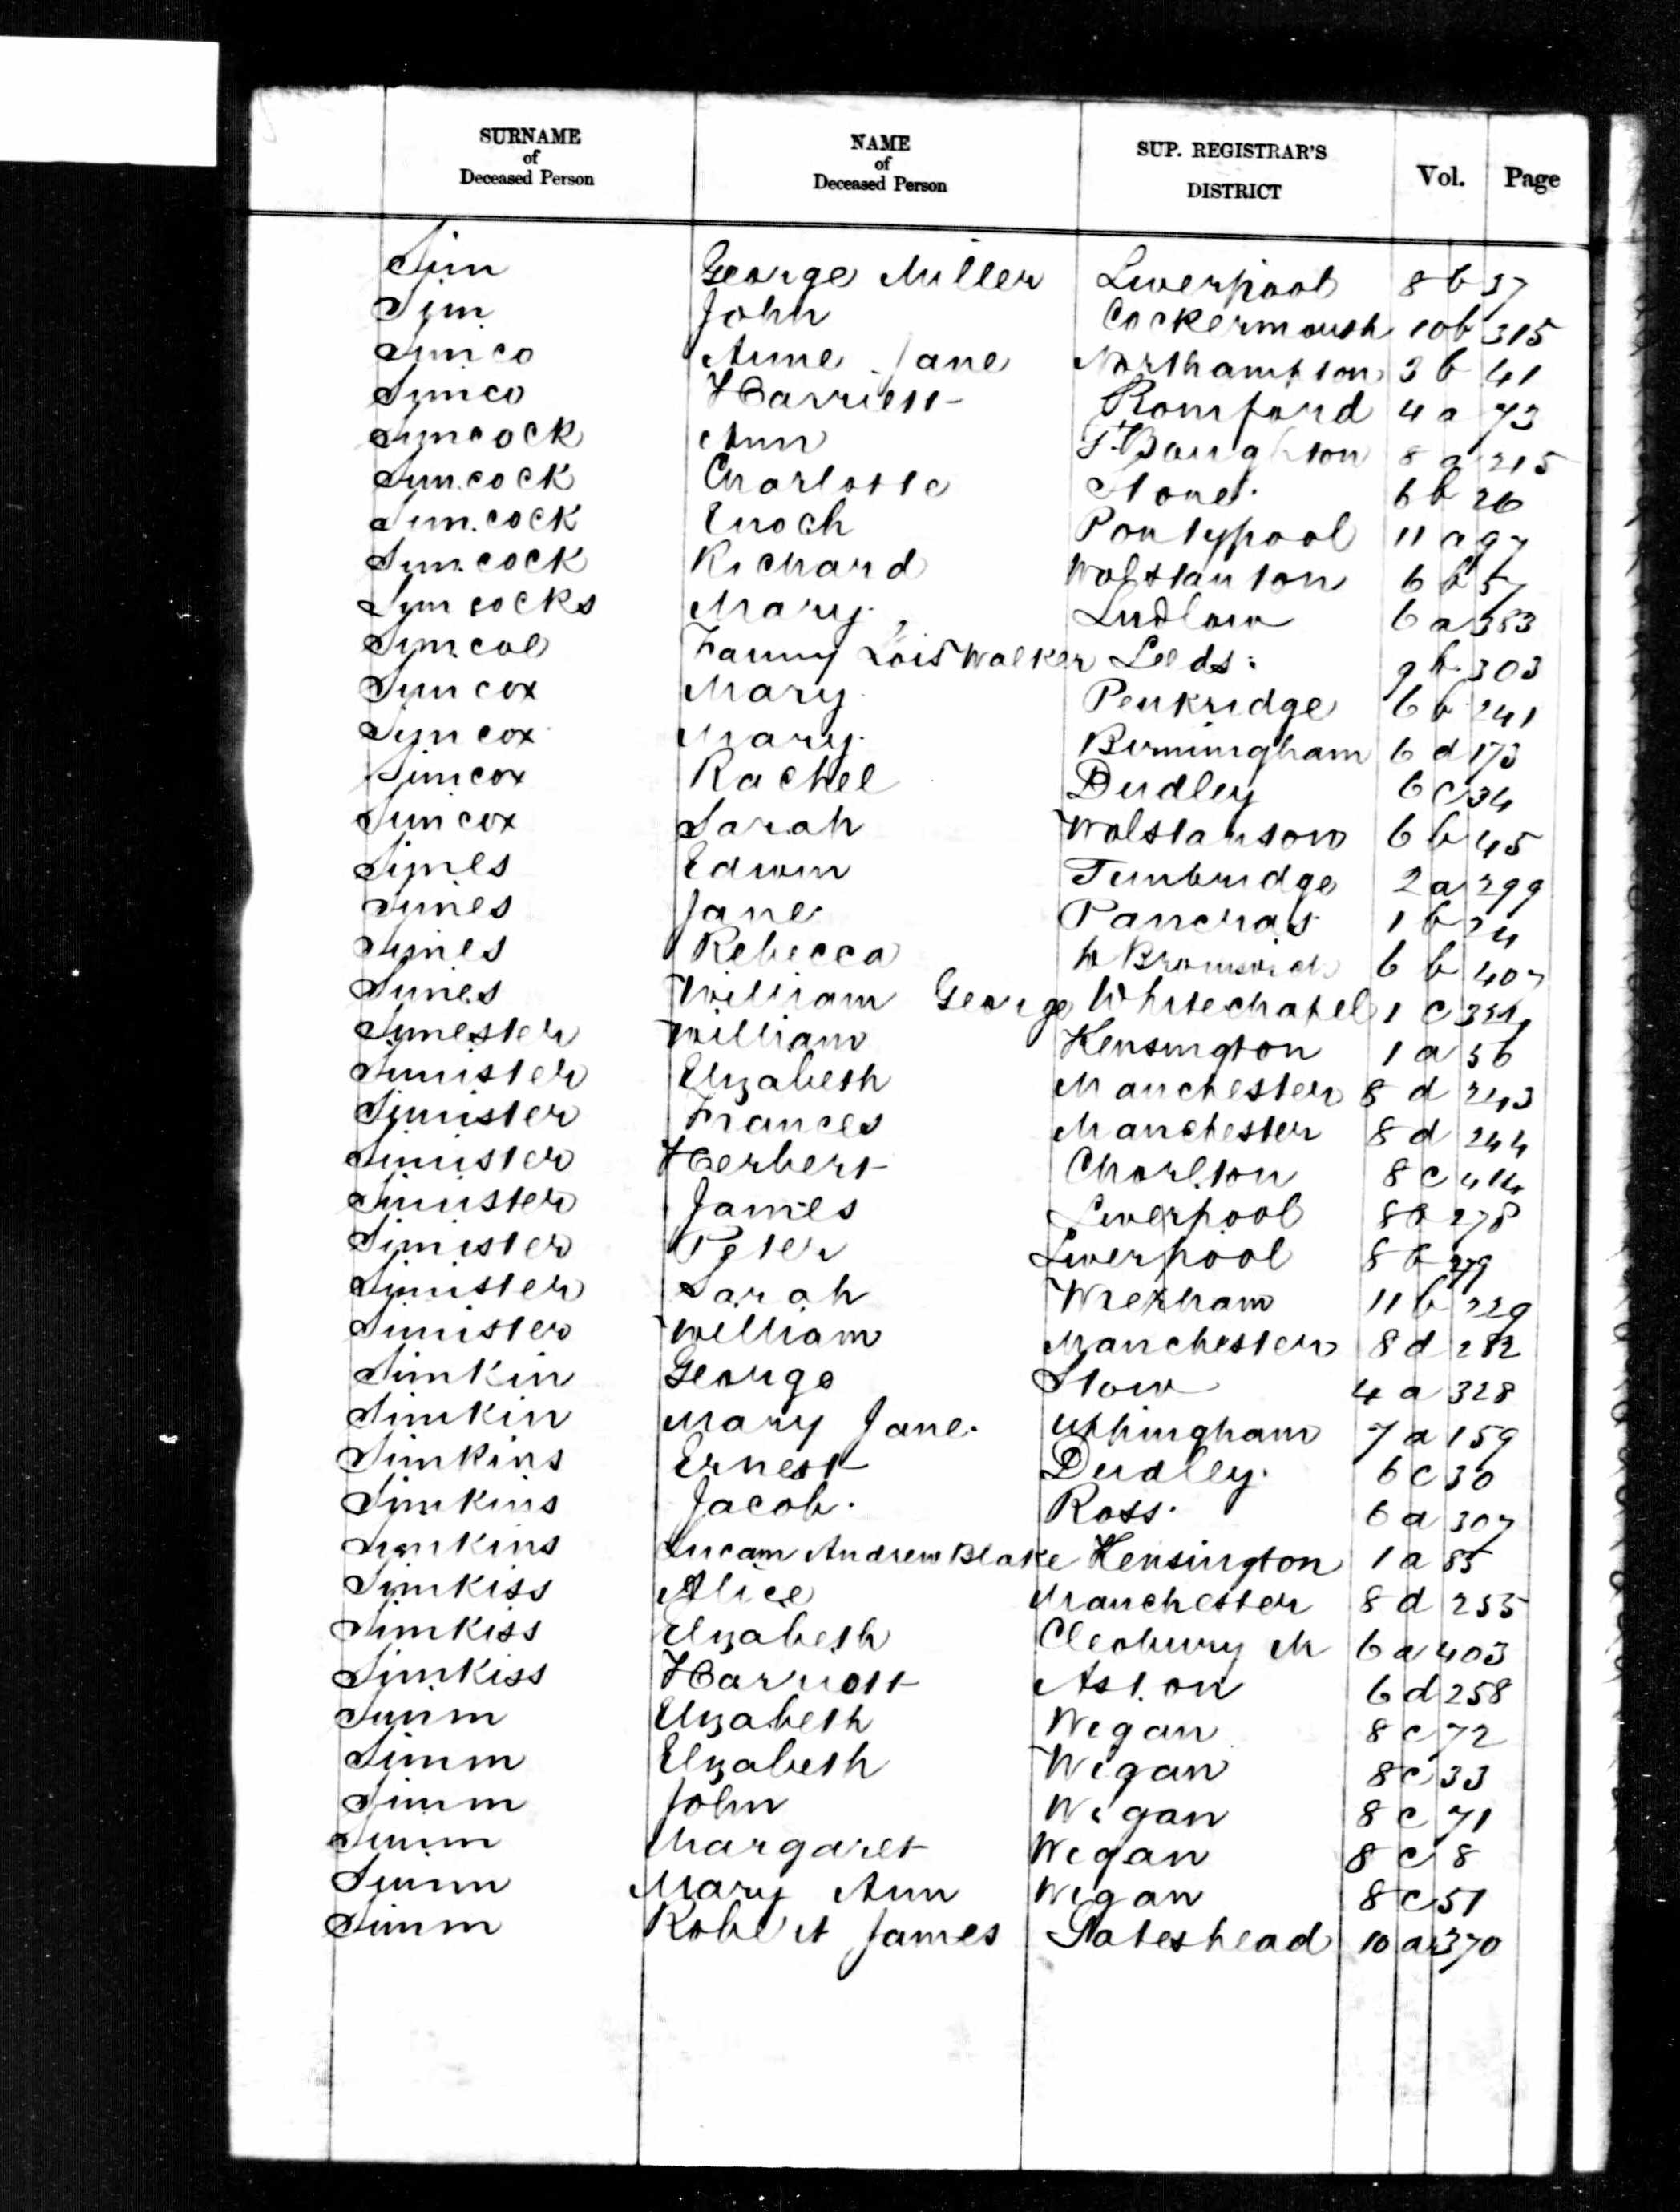 SURNAME of Deceased Person NAME of Deceased Person SUP. REGISTRAR'S DISTRICT Vol. Page
Sim George Miller Liverpool 8 b 37
Sim John Cockermouth 10 b 315
Simco Anne Jane Northampton 3 b 41
Simco Harriett Romford 4 a 73
Simcock Ann Gt. Boughton 8 a 215
Simcock Charlotte Stone 6 b 26
Simcock Enoch Pontypool 11 a 97
Simcock Richard Wolstanton 6 b 57
Simcocks Mary Ludlow 6 a 383
Simcoe Fanny Lois Walker Leeds 9 b 303
Simcox Mary Penkridge 6 b 241
Simcox Mary Birmingham 6 d 173
Simcox Rachel Dudley 6 c 34
Simcox Sarah Wolstanton 6 b 45
Simes Edwin Tunbridge 2 a 299
Simes Jane Pancras 1 b
Simes Rebecca W Bromwich 6 b 407
Simes William George Whitechapel 1 c
Simester William Kensington 1 a 56
Simister Elizabeth Manchester 8 d 243
Simister Frances Manchester 8 d 244
Simister Herbert Chorlton 8 c 414
Simister James Liverpool 8 b 278
Simister Peter Liverpool 8 b 279
Simister Sarah Wrexham 11 b 229
Simister William Manchester 8 d 282
Simkin George Stow 4 a 328
Simkin Mary Jane Uppingham 7 a 159
Simkins Ernest Dudley 6 c 30
Simkins Jacob Ross 6 a 307
Simkins Andrew Blake Kensington 1 a 85
Simkiss Alice Manchester 8 d 255
Simkiss Elizabeth Cleobury M 6 a 403
Simkiss Harriott Aston 6 d 258
Simm Elizabeth Wigan 8 c 72
Simm Elizabeth Wigan 8 c 33
Simm John Wigan 8 c 71
Simm Margaret Wigan 8 c 8
Simm Mary Ann Wigan 8 c 51
Simm Robert James Gateshead 10 a 370